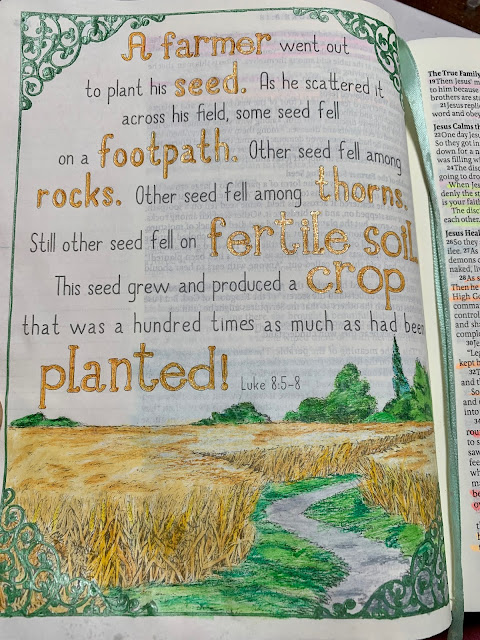 A farmer went out
to plant his seed. As he scattered it
across his field, some seed fell
on a footpath. Other seed fell among
rocks. Other seed fell among thorns.
Still other seed fell on fertile soil.
This seed grew and produced a crop
that was a hundred times as much as had been
planted! Luke 8:5-8
The True Family
19Then Jesus' m
to him because
brothers are st
21Jesus replie
word and obey
Jesus Calms th
22One day Jes
So they got in
down for a n
was filling w
24The disc
going to dro
When Jes
denly the st
is your faith
The disc
each other.
Jesus Heal
26So they
ilee. 27As
demons c
naked, liv
28As s
Then he
High Go
comma
control
and sh
comple
30Je
"Leg
kept h
32T
and th
So
and
into
34
rou
to s
saw
fee
wh
ma
be